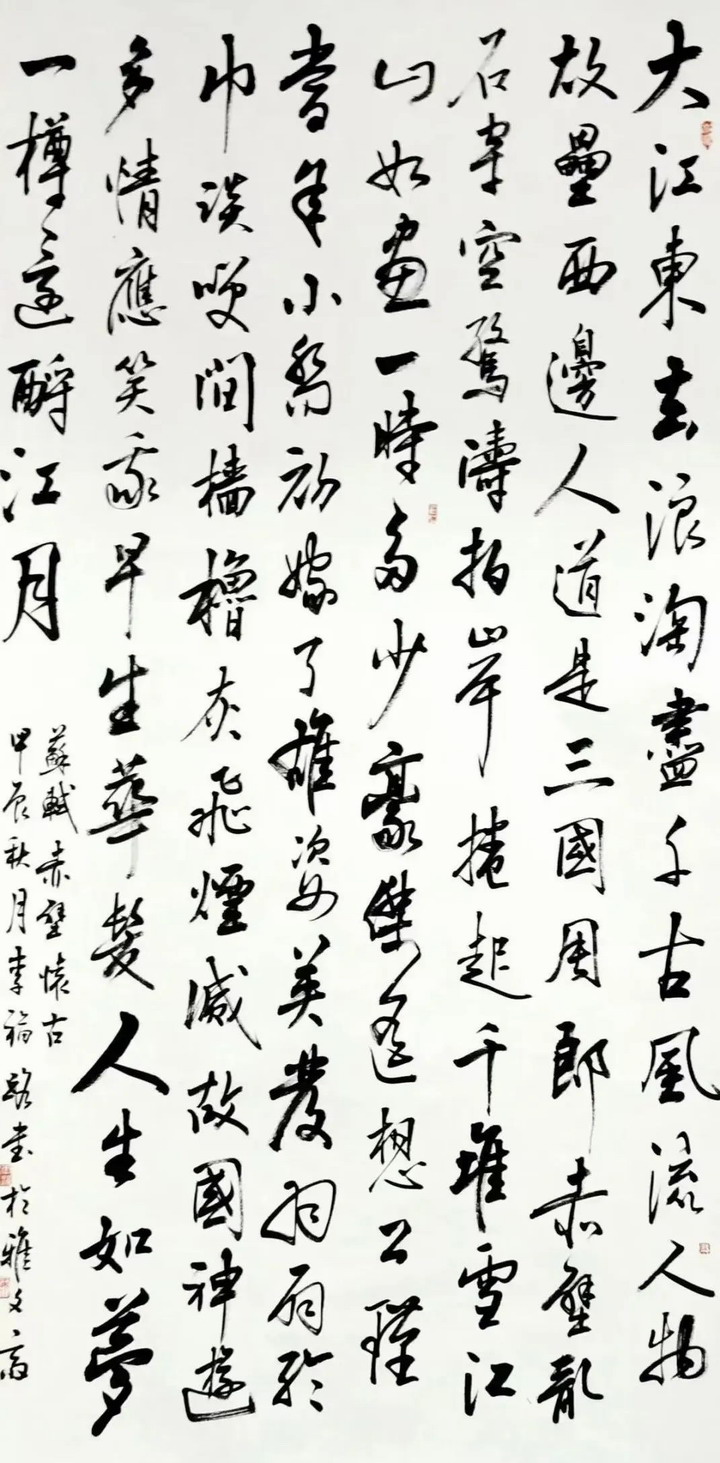 大江東去浪淘盡千古風流人物
故壘西邊人道是三國周郎赤壁亂
石穿空驚濤拍岸捲起千堆雪江
山如畫一時多少豪傑遙想公瑾
當年小喬初嫁了雄姿英發羽扇綸
巾談咲間檣櫓灰飛煙滅故國神遊
多情應笑我早生華髮人生如夢
一樽還酹江月
蘇軾赤壁懷古
甲辰秋月李福路書於雅文齋